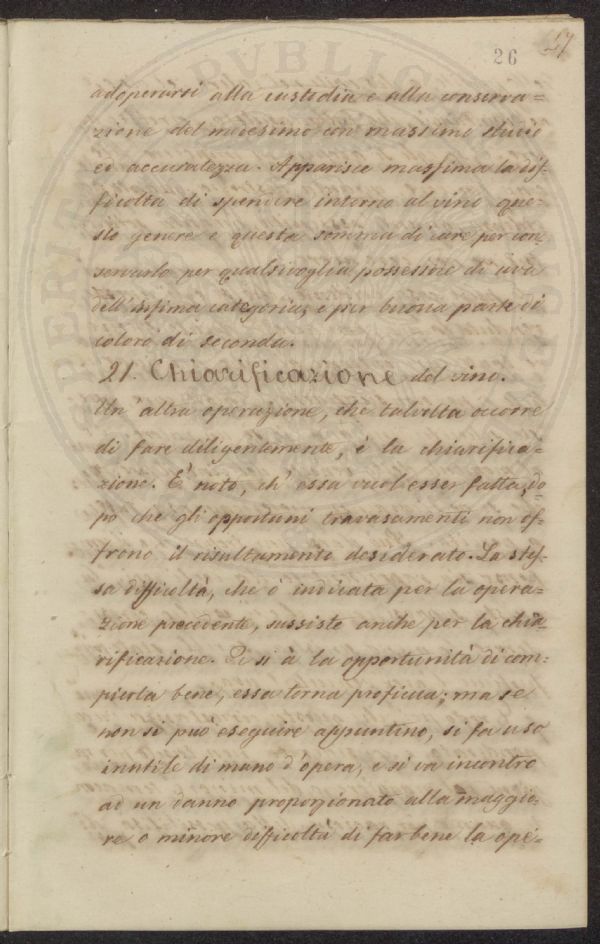 26
27
adoperarsi alla custodia e alla conserva=
zione del medesimo con massimo studio
ed accuratezza. Apparisce massima la dif=
ficoltà di spendere intorno al vino que=
sto genere e questa somma di cure per con=
servarlo per qualsivoglia possessore di uva
dell'infima categoria, e per buona parte di
coloro di seconda.
21. Chiarificazione del vino.
Un'altra operazione, che talvolta occorre
di fare diligentemente, è la chiarifica=
zione. È noto, ch'essa vuol esser fatta, do
pò che gli opportuni travasamenti non of=
frono il risultamento desiderato. La stes=
sa difficoltà, che è indicata per la opera=
zione precedente, sussiste anche per la chia
rificazione. Se si à la opportunità di com=
pierla bene, essa torna proficua; ma se
non si può eseguire appuntino, si fa uso
inutile di mano d'opera, e si va incontro
ad un danno proporzionato alla maggio=
re o minore difficoltà di far bene la ope=